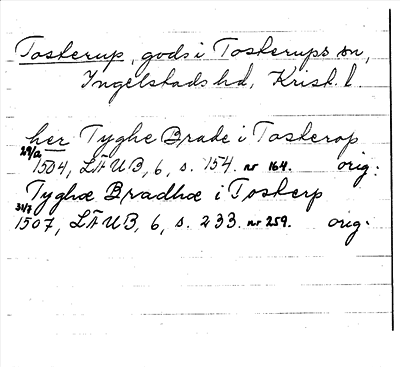 Tosterup, gods i Tosterups sn,
Ingelstads hd, Krist. l.
her Tyghe Brade i Tosterop
29/2 1504, LÄUB, 6, s. 154. nr 164. orig.
Tyghæ Bradhæ i Tosterp
31/7 1507, LÄUB, 6, s. 233. nr 259. orig.